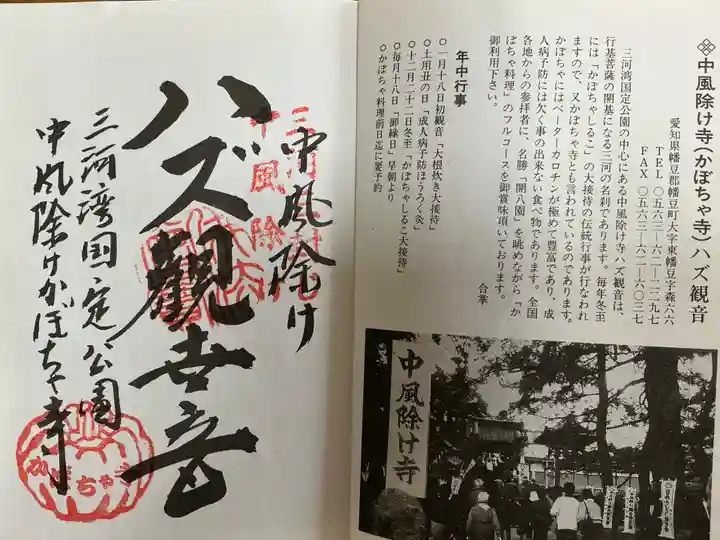 ※中風除け寺(かぼちゃ寺)ハズ観音
愛知県幡豆郡幡豆町大字東幡豆字森六六
TEL 〇五六三―六二―二二九七
FAX 〇五六三―六二―六〇三七
三河湾国定公園の中心にある中風除け寺ハズ観音は、
行基菩薩の開基になる三河の名刹であります。毎年冬至
には「かぼちゃしるこ」の大接待の伝統行事が行なわれ
ますので、又かぼちゃ寺とも言われているのであります。
かぼちゃにはベーターカロチンが極めて豊富であり、成
人病予防には欠く事の出来ない食べ物であります。全国
各地からの参拝者に、名勝「開八園」を眺めながら「か
ぼちゃ料理」のフルコースを御賞味頂いております。
御利用下さい。
合掌
年中行事
○一月十八日初観音「大根炊き大接待」
○土用丑の日「成人病予防ほうろく灸」
○十二月二十二日冬至「かぼちゃしるこ大接待」
○毎月十八日「御縁日」早朝より
○かぼちゃ料理前日迄に要予約
中風除け寺
中風除け
ハズ観世音
三河湾国定公園
中風除けかぼちゃ寺
かぼちゃ寺